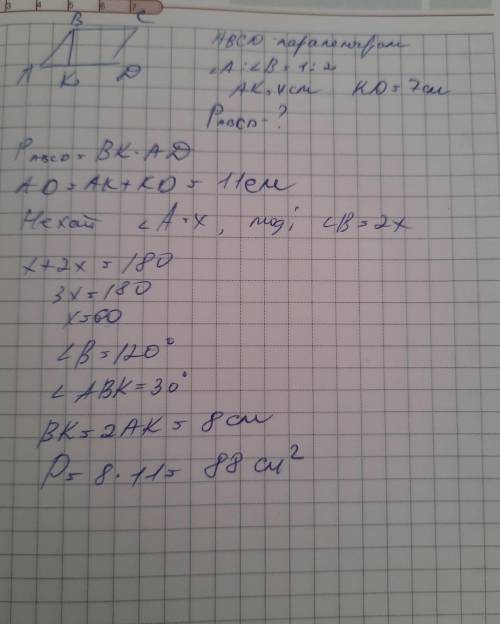 3 4 5 6 7
B C
A K D
ABCD паралелограм
∠A:∠B=1:2
AK=4см KD=7см
P ABCD - ?
P ABCD = BK·AD
AD=AK+KD= 11см
Нехай ∠A=x, тоді ∠B=2x
x+2x=180
3x=180
x=60
∠B=120°
∠ABK=30°
BK=2AK= 8см
P= 8·11= 88 см²